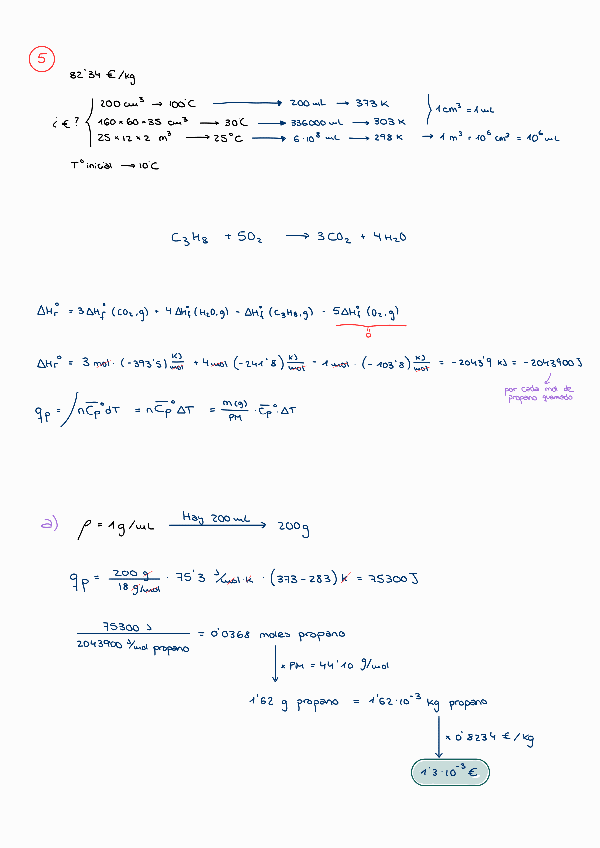 5
82'34 €/kg
200 cm³ → 100°C → 200 mL → 373 K
1 cm³ = 1 mL
¿€? 160 × 60 × 35 cm³ → 30C → 336000 mL → 303 K
25 × 12 × 2 m³ → 25°C → 6·10⁸ mL → 298 K → 1 m³ = 10⁶ cm³ = 10⁶ mL
Tº inicial → 10°C
C₃H₈ + 5O₂ → 3CO₂ + 4H₂O
ΔHr° = 3ΔHf° (CO₂,g) + 4ΔHf° (H₂O,g) - ΔHf° (C₃H₈,g) - 5ΔHf° (O₂,g)
0
ΔHr° = 3 mol · (-393'5) KJ/mol + 4 mol (-241'8) KJ/mol - 1 mol · (-103'8) KJ/mol = -2043'9 KJ = -2043900 J
por cada mol de
propano quemado
qp = ∫ n C̅p° dT = n C̅p° ΔT = m(g)/PM · C̅p° · ΔT
a) ρ = 1g/mL Hay 200 mL → 200g
qp = 200 g / 18 g/mol · 75'3 J/mol·K · (373 - 283) K = 75300 J
75300 J / 2043900 J/mol propano = 0'0368 moles propano
× PM = 44'10 g/mol
1'62 g propano = 1'62·10⁻³ kg propano
× 0'8234 €/kg
1'3·10⁻³ €